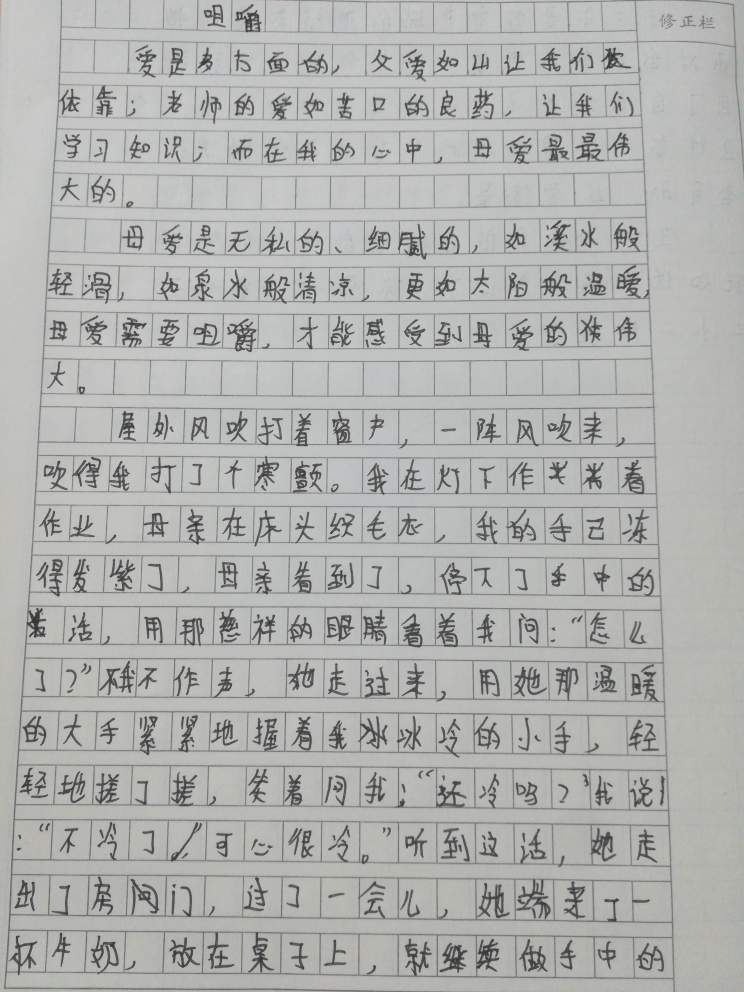 咀嚼
修正栏
爱是多方面的，父爱如山让我们做
依靠；老师的爱如苦口的良药，让我们
学习知识；而在我的心中，母爱最最伟
大的。
母爱是无私的、细腻的，如溪水般
轻滑，如泉水般清凉，更如太阳般温暖，
母爱需要咀嚼，才能感受到母爱的伟
大。
屋外风吹打着窗户，一阵风吹来，
吹得我打了个寒颤。我在灯下作着
作业，母亲在床头织毛衣，我的手已冻
得发紫了，母亲看到了，停下了手中的
活，用那慈祥的眼睛看着我问：“怎么
了？”我不作声，她走过来，用她那温暖
的大手紧紧地握着我冰冰冷的小手，轻
轻地搓了搓，笑着问我：“还冷吗？”我说
：“不冷了，可心很冷。”听到这话，她走
出了房间门，过了一会儿，她端来了一
杯牛奶，放在桌子上，就继续做手中的